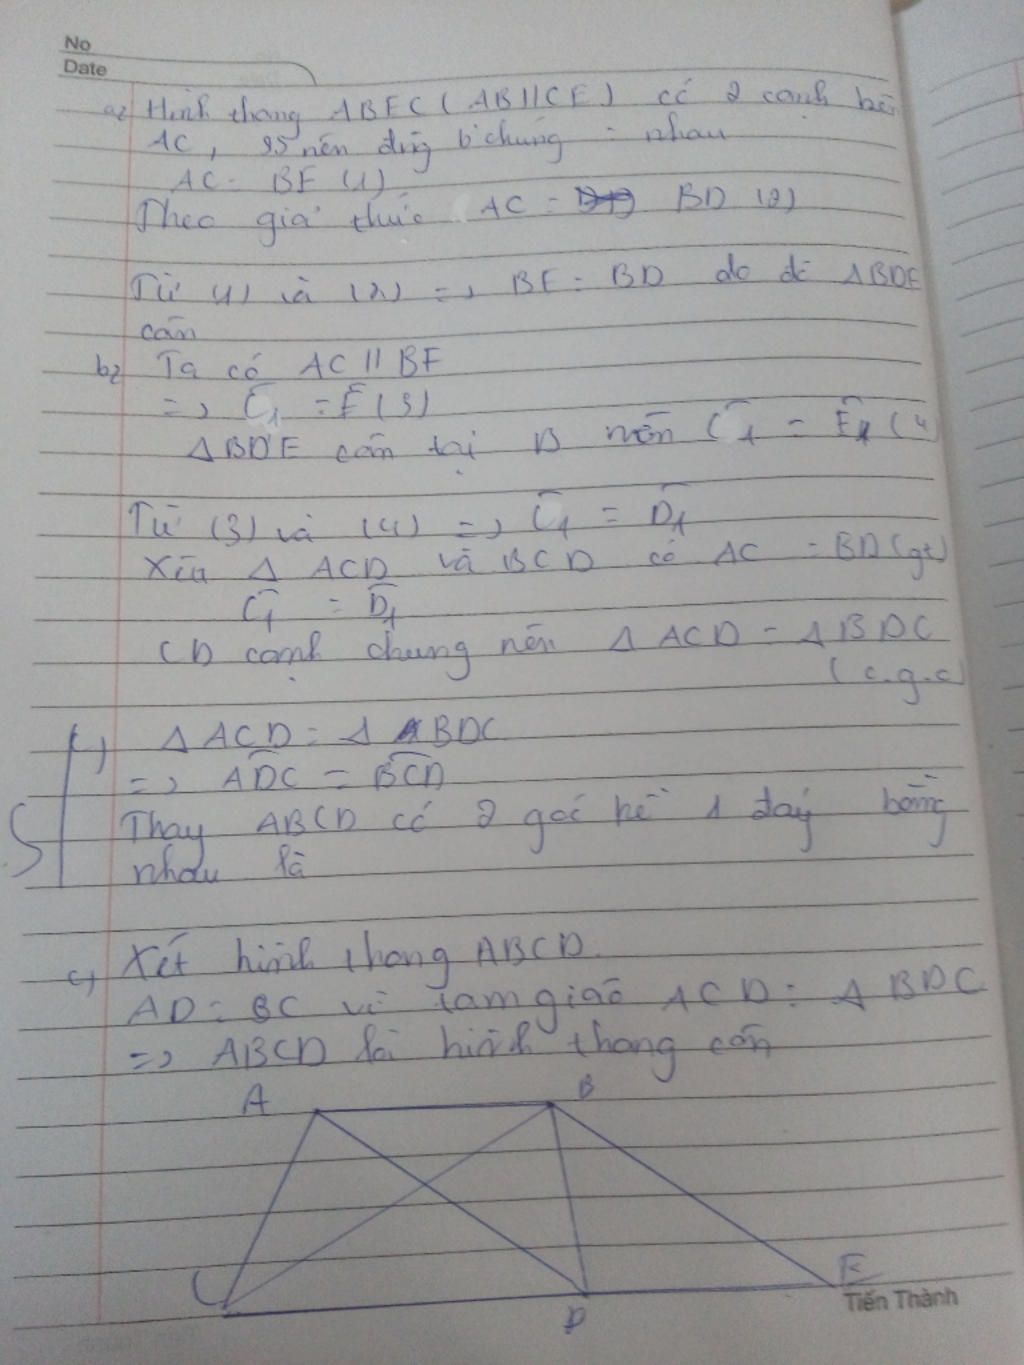 No
Date
a) Hình thang ABEC (AB//CE) có 2 cạnh bên
AC, nên chúng = nhau
AC = BE (1)
Theo giả thiết AC = BD (2)
Từ (1) và (2) => BE = BD do đó ΔBDE
cân
b) Ta có AC // BE
=> C1 = E (3)
ΔBDE cân tại B nên C1 = E1 (4)
Từ (3) và (4) => C1 = D1
Xét Δ ACD và BCD có AC = BD (gt)
C1 = D1
CD cạnh chung nên Δ ACD = Δ BDC
(c.g.c)
c) Δ ACD = Δ BDC
=> ADC = BCD
Thay ABCD có 2 goc kề 1 đáy bằng
nhau là
c) Xét hình thang ABCD.
AD = BC vì tam giác ACD = Δ BDC
=> ABCD là hình thang cân
A B
C D E
Tiến Thành